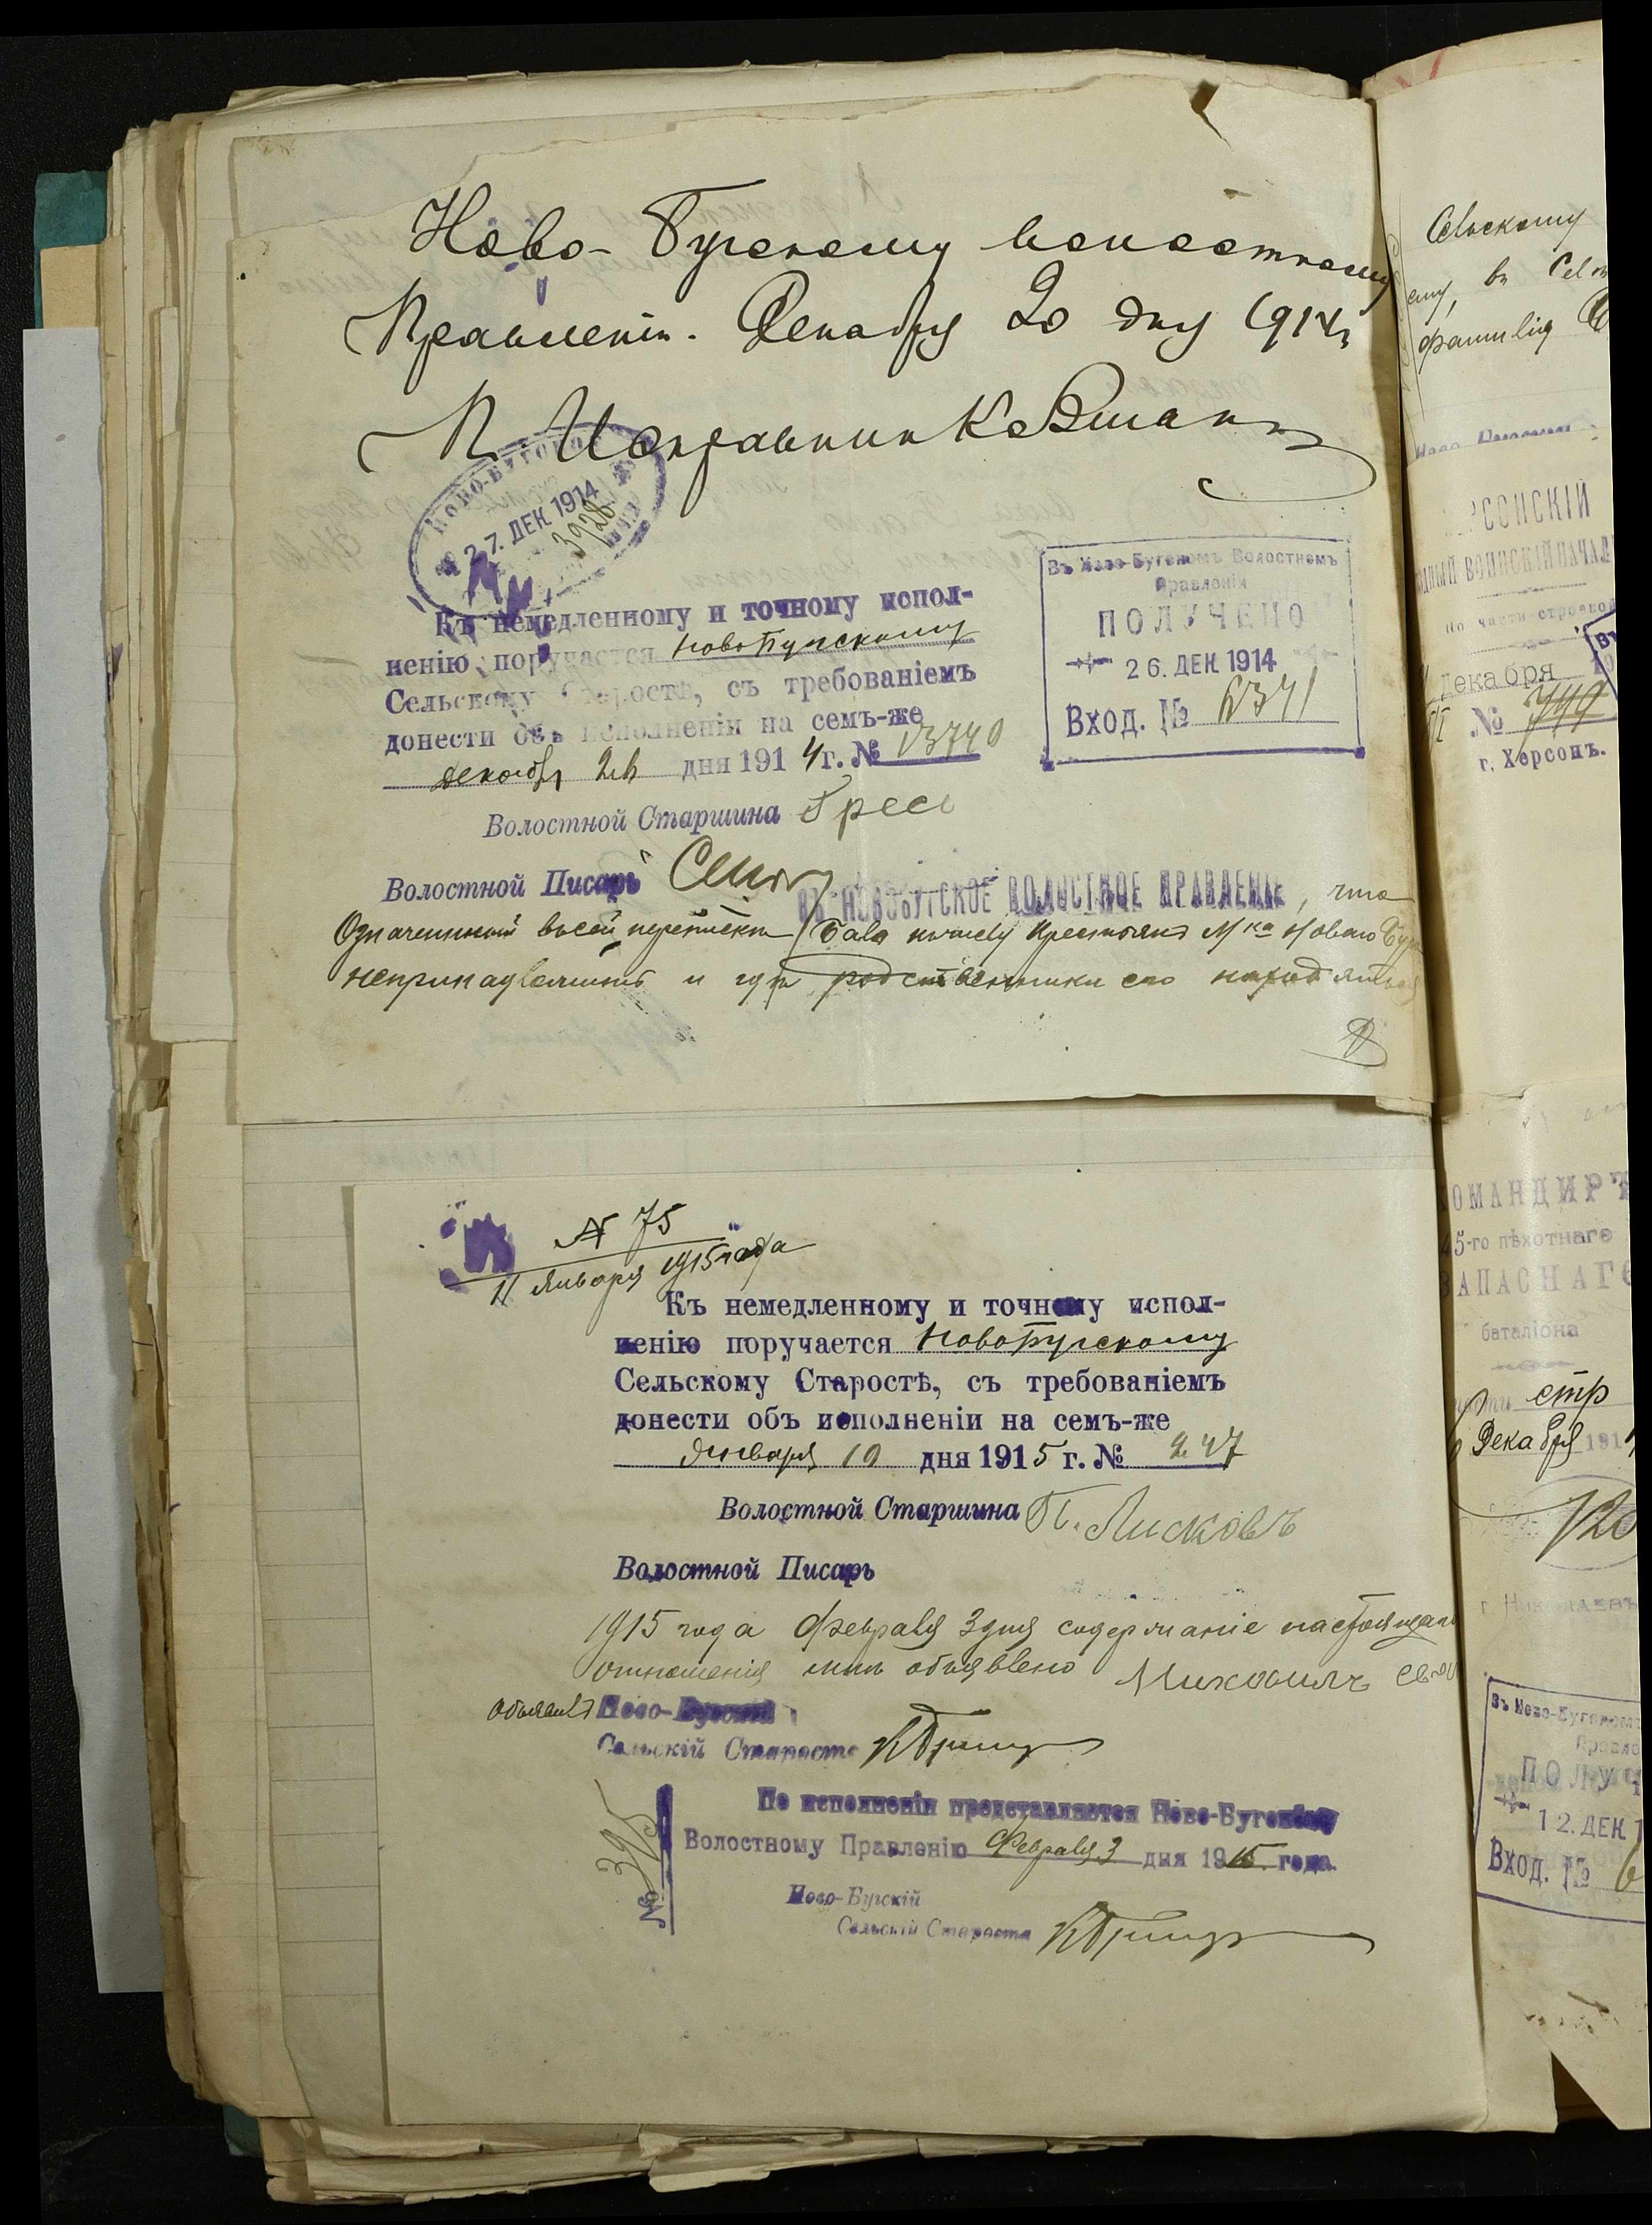 Ново-Бугскому волостному
Правленію. Декабря 20 дня 1914г
П. Исправника
НОВО-БУГСКОЕ
27. ДЕК. 1914
3928
Къ немедленному и точному испол-
ненію поручается НовоБугскому
Сельскому Старостѣ, съ требованіемъ
донести объ исполненіи на семъ-же
декабря 26 дня 1914 г. №
Волостной Старшина
Волостной Писарь
Въ Ново-Бугскомъ Волостномъ
Правленіи
ПОЛУЧЕНО
26. ДЕК. 1914
Вход. №
ВЪ НОВОБУГСКОЕ ВОЛОСТНОЕ ПРАВЛЕНІЕ, что
Означенный въ сей перепискѣ къ числу крестьянъ Мка Новаго Буга
непринадлежитъ и гдѣ родственники его находятся
№ 75
11 Января 1915 года
Къ немедленному и точному испол-
ненію поручается НовоБугскому
Сельскому Старостѣ, съ требованіемъ
донести объ исполненіи на семъ-же
Января 10 дня 1915 г. № 247
Волостной Старшина П. Лисковъ
Волостной Писарь
1915 года Февраля 3 дня содержаніе настоящаго
отношенія мнѣ объявлено Михаилъ
Объявилъ Ново-Бугскій
Сельскій Староста
№ 395
По исполненіи представляется Ново-Бугскому
Волостному Правленію Февраля 3 дня 1915 года.
Ново-Бугскій
Сельскій Староста
Сельскому
ему, въ
фамилія
ХЕРСОНСКІЙ
ВОИНСКІЙ НАЧАЛ
по части строевой
Декабря
№
г. Херсонъ.
КОМАНДИРЪ
45-го пѣхотнаго
ЗАПАСНАГО
баталіона
стр
Декабря 191
г. Николаевъ
Въ Ново-Бугском
Правле
ПОЛУЧ
12. ДЕК. 1
Вход. № 6